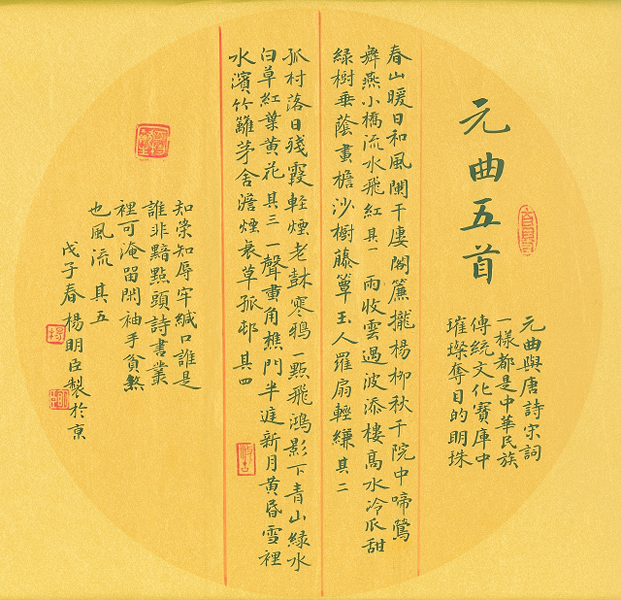 元曲五首
元曲與唐詩宋詞
一樣都是中華民族
傳統文化寶庫中
璀璨奪目的明珠
春山暖日和風闌干廔閣簾攏楊柳秋千院中啼鶯
舞燕小橋流水飛紅 其一 雨收雲過波添樓高水冷瓜甜
綠樹垂蔭畫檐沙櫥藤簟玉人羅扇輕縑 其二
孤村落日殘霞輕煙老寒鴉一點飛鴻影下青山綠水
白草紅葉黃花 其三 一聲畫角樵門半庭新月黃昏雪裡
水濱竹籬茅舍澹煙衰草孤邨 其四
知榮知辱牢緘口誰是
誰非黯點頭詩書叢
裡可淹留閑袖手貧煞
也風流 其五
戊子春楊明臣製於京